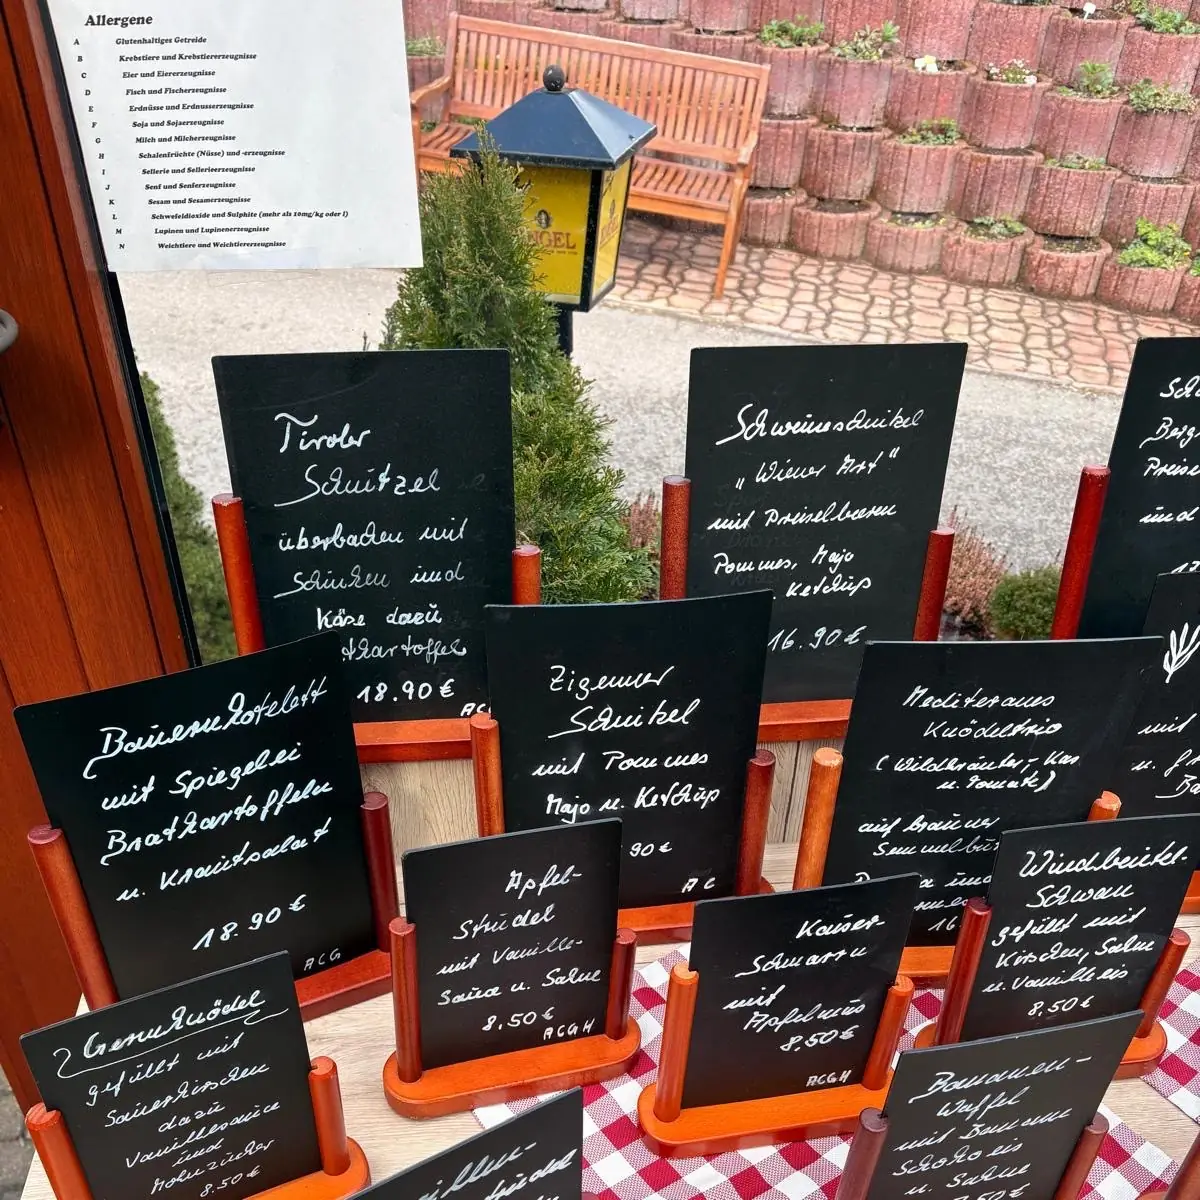 Allergene
A Glutenhaltiges Getreide
B Krebstiere und Krebstiererzeugnisse
C Eier und Eiererzeugnisse
D Fisch und Fischerzeugnisse
E Erdnüsse und Erdnusserzeugnisse
F Soja und Sojaerzeugnisse
G Milch und Milcherzeugnisse
H Schalenfrüchte (Nüsse) und -erzeugnisse
I Sellerie und Sellerieerzeugnisse
J Senf und Senferzeugnisse
K Sesam und Sesamerzeugnisse
L Schwefeldioxide und Sulphite (mehr als 10mg/kg oder l)
M Lupinen und Lupinenerzeugnisse
N Weichtiere und Weichtiererzeugnisse
Tiroler
Schnitzel
überbacken mit
Schinken und
Käse dazu
18.90 €
Schweineschnitzel
„Wiener Art"
mit Preiselbeeren
Pommes, Majo
Ketchup
16.90 €
Bauernkotelett
mit Spiegelei
Bratkartoffeln
u. Krautsalat
18.90 €
ACG
Zigeuner
Schnitzel
mit Pommes
Majo u. Ketchup
90 €
AC
Mediteranes
Knödeltrio
(Wildkräuter-, Kas
u. Tomate)
auf brauner
und
16.
Apfel-
Strudel
mit Vanille-
Sauce u. Sahne
8.50 €
ACGH
Kaiser-
Schmarrn
mit
Apfelmus
8.50 €
ACGH
Windbeutel-
Schwan
gefüllt mit
Kirschen, Sahne
u. Vanilleeis
8,50 €
Germknödel
gefüllt mit
Sauerkirschen
dazu
Vanillesauce
und
Mohnzucker
8.50 €
Bananen-
Waffel
mit Banane
Schokoeis
u. Sahne
mit